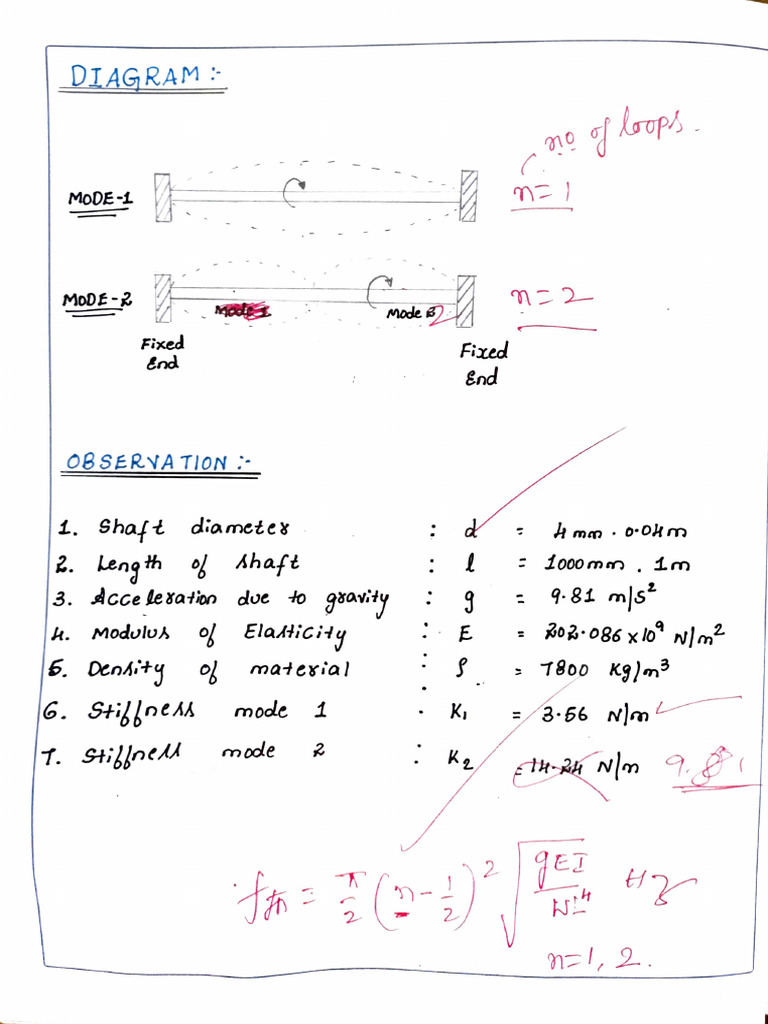 DIAGRAM :-
no of loops.
MODE-1
n = 1
MODE-2
n = 2
Mode 2
Fixed
End
Fixed
End
OBSERVATION :-
1. Shaft diameter : d = 4mm . 0.04m
2. Length of shaft : l = 1000mm . 1m
3. Acceleration due to gravity : g = 9.81 m/s²
4. Modulus of Elasticity : E = 202.086 x 10⁹ N/m²
5. Density of material : ρ = 7800 Kg/m³
6. Stiffness mode 1 : K₁ = 3.56 N/m
7. Stiffness mode 2 : K₂ = 14.24 N/m
= π/2 (n - 1/2)² √(gEI/WL⁴) Hz
n=1, 2.